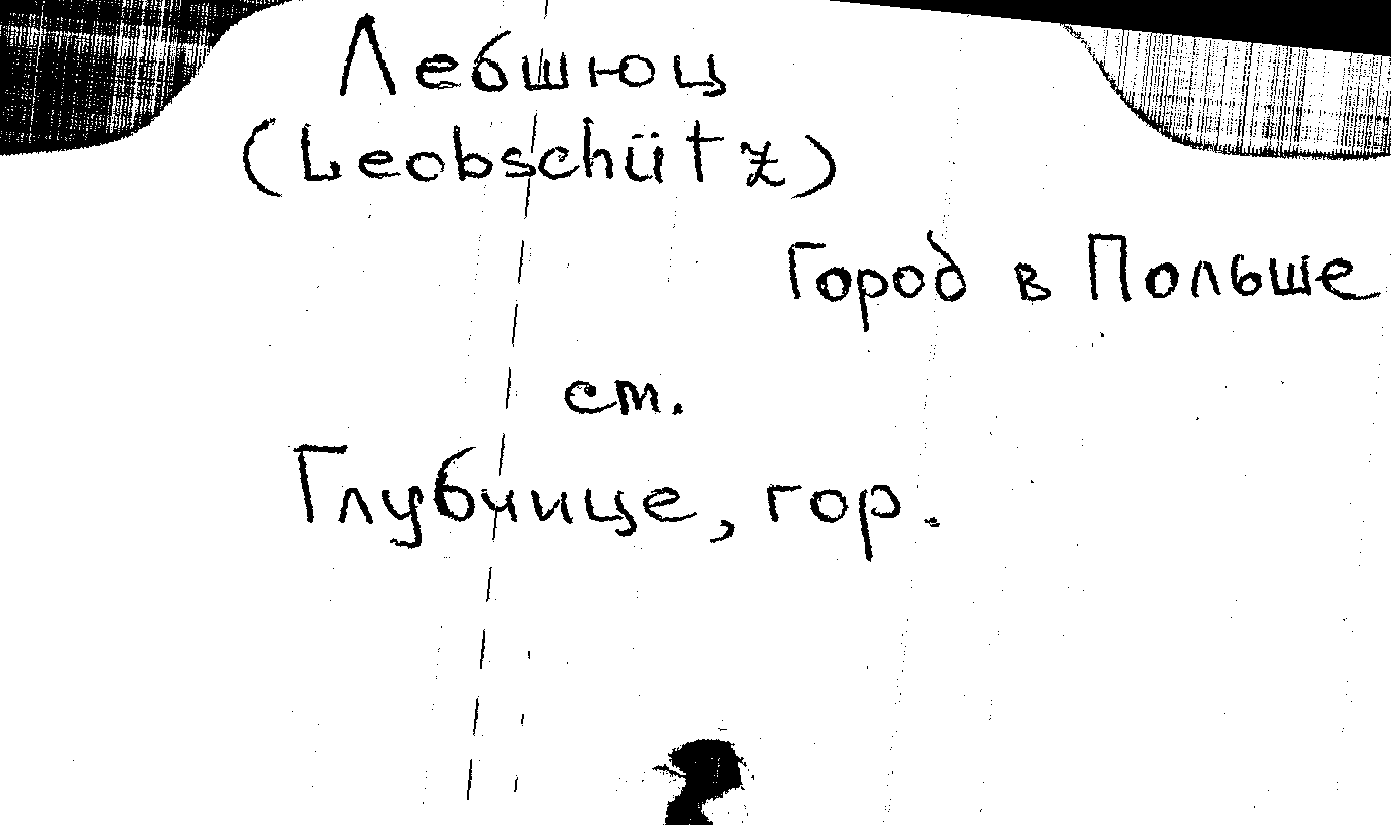 Лебшюц
(Leobschütz)
Город в Польше
ст.
Глубчице, гор.